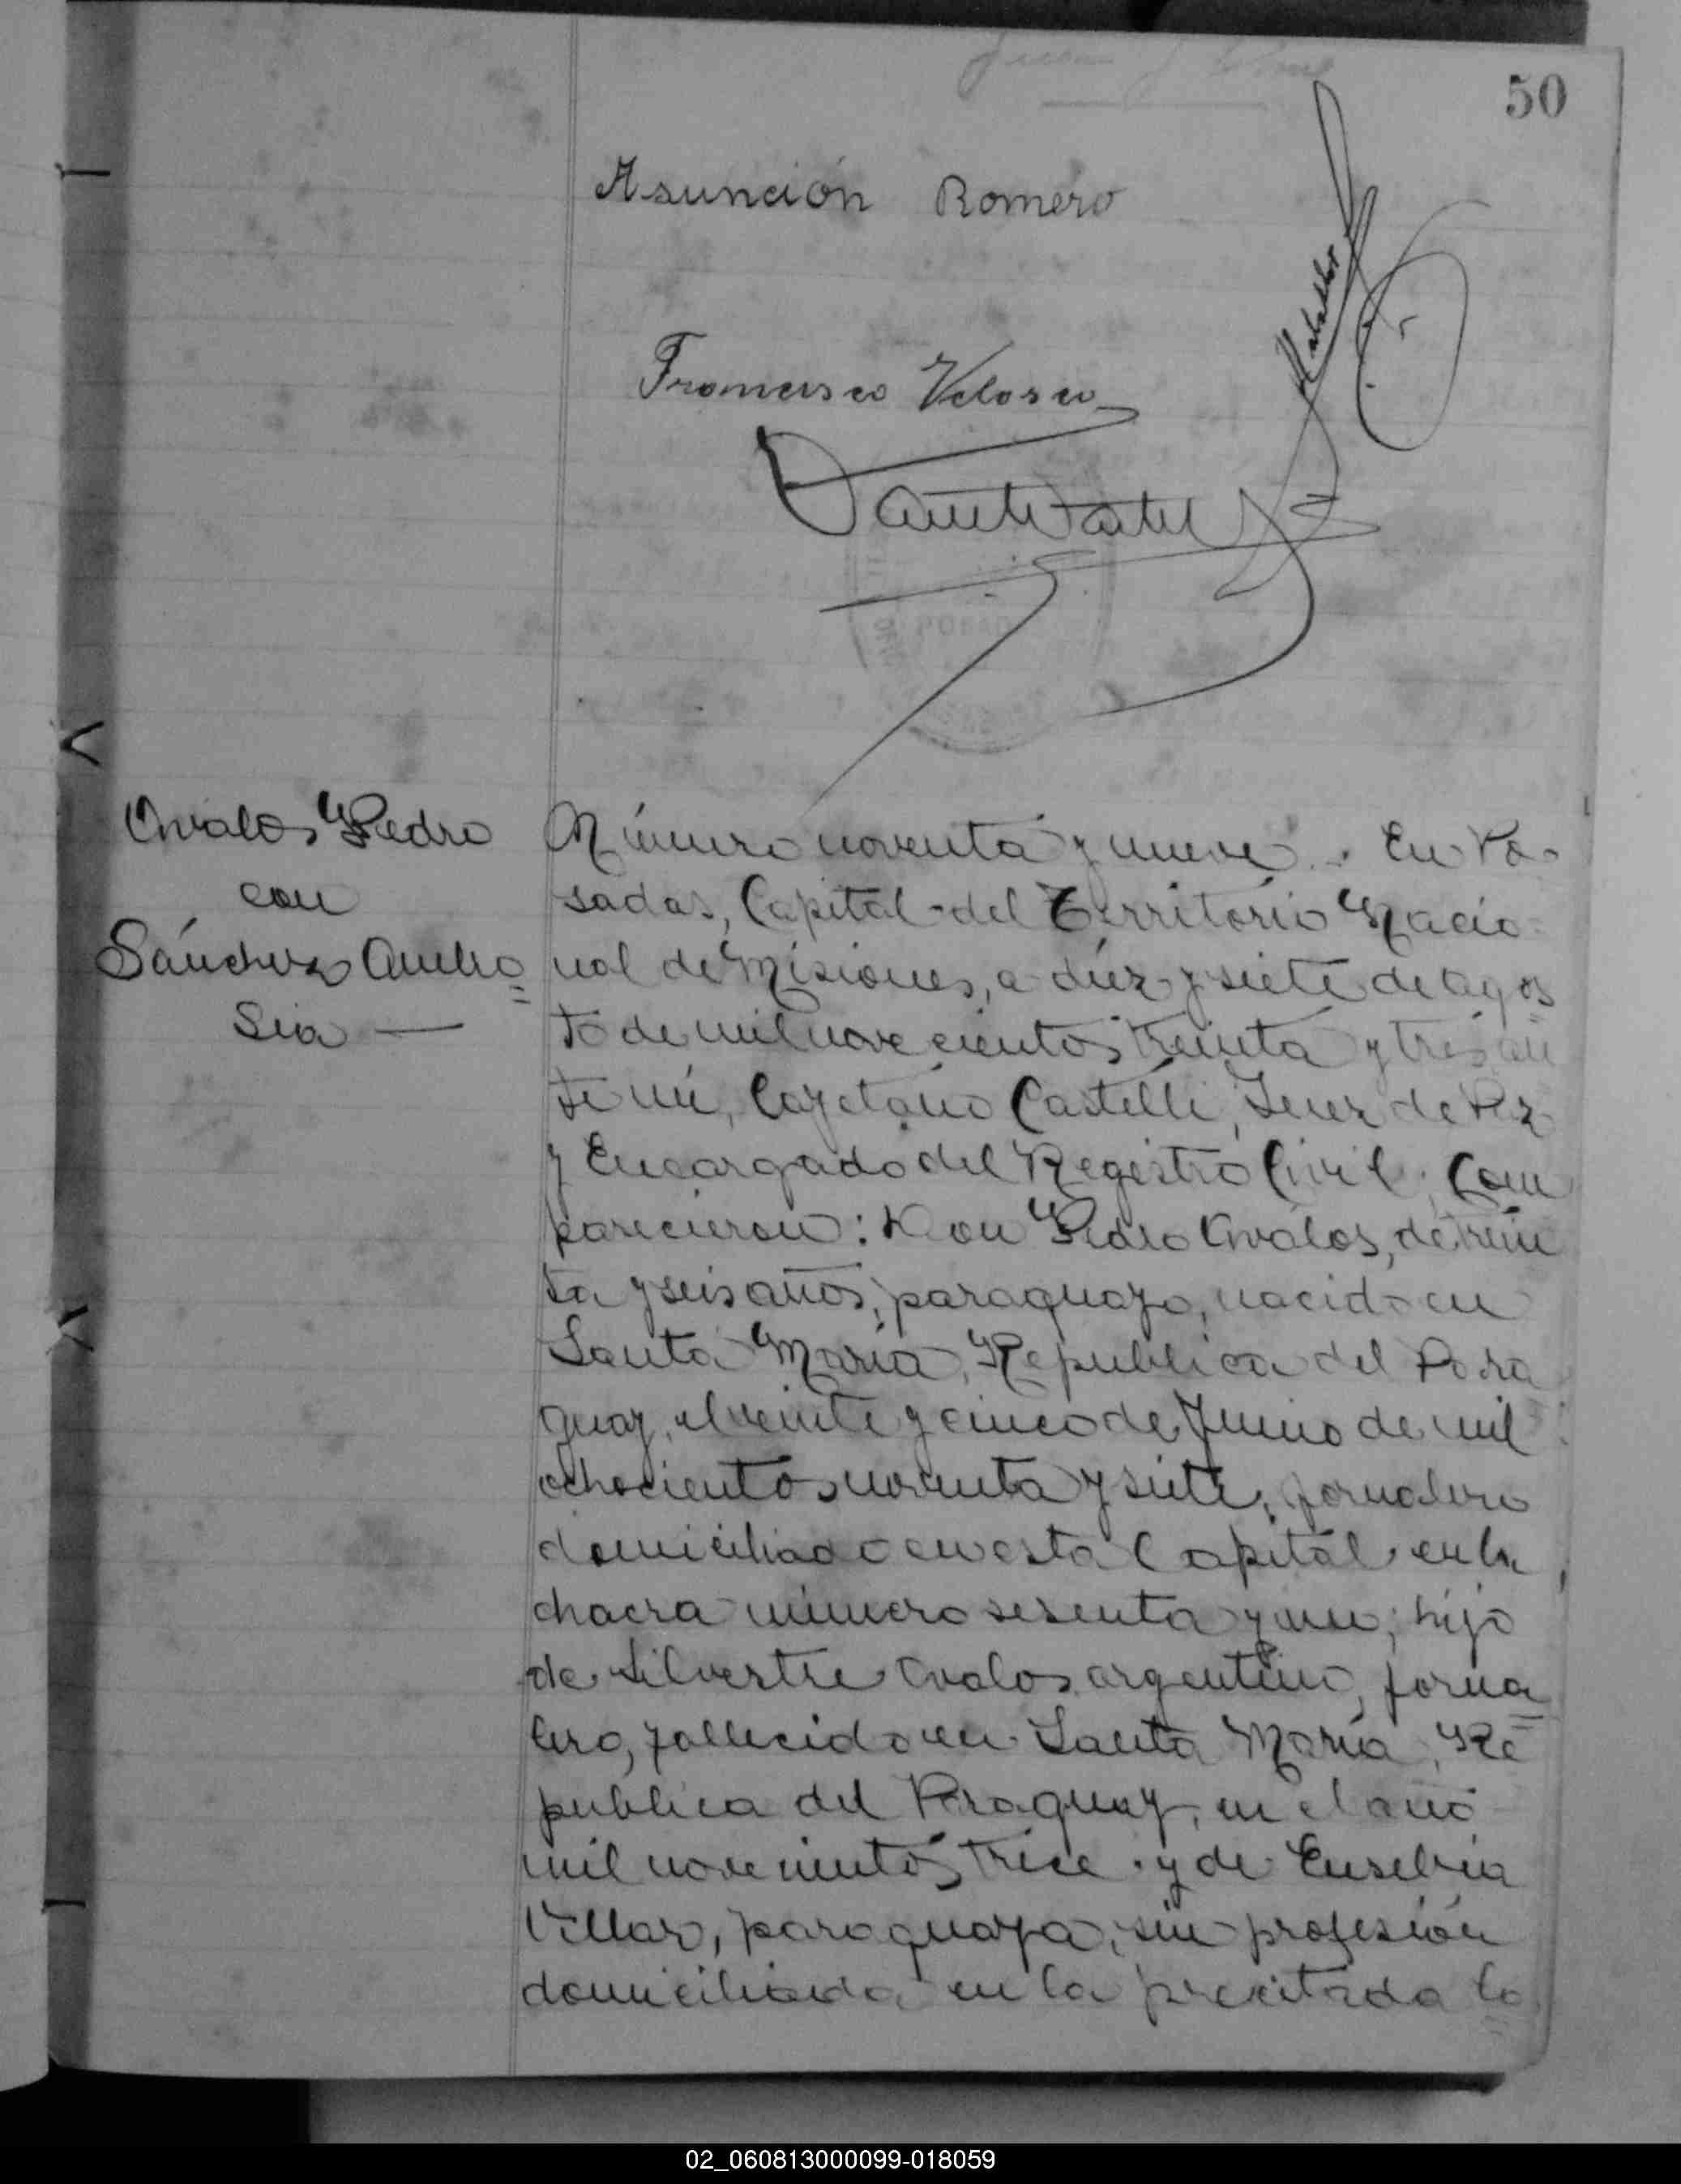 50
Asunción Romero
Francisco Velosco
Ovalos Pedro
con
Sánchez Ambro=
sia —
Número noventa y nueve. En Po-
sadas, Capital del Territorio Nacio-
nal de Misiones, a diez y siete de Agos
to de mil novecientos treinta y tres an
te mí, Cayetano Castelli, Juez de Paz
y Encargado del Registro Civil, Com
parecieron: Don Pedro Ovalos, de trein
ta y seis años, paraguayo, nacido en
Santa María, Republica del Para
guay, el veinte y cinco de Junio de mil
ochocientos noventa y siete, jornalero
domiciliado en esta Capital en la
chacra número sesenta y uno; hijo
de Silvestre Ovalos argentino, jorna=
lero, fallecido en Santa María, Re=
publica del Paraguay, en el año
mil novecientos trece y de Eusebia
Villar, paraguaya, sin profesión
domiciliada en la precitada lo
02_060813000099-018059